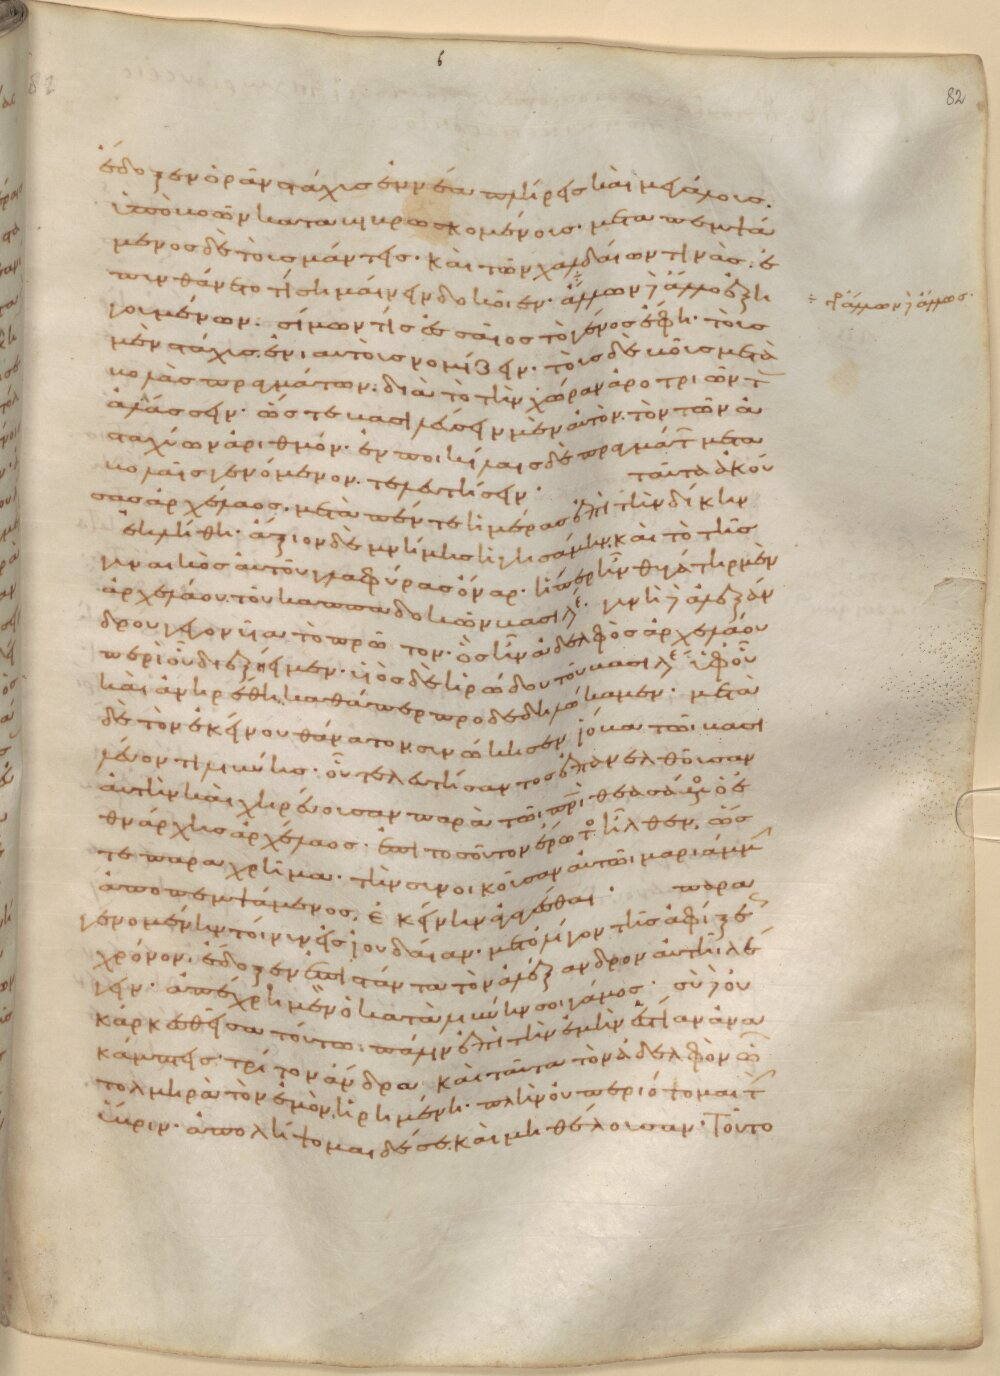 ἔδοξεν ὁρᾶν στάχυς ἐννέα πλήρεις καὶ μεγάλους·
ὑπὸ βοῶν καταβιβρωσκομένους· μεταπεμψά
μενος δὲ τοὺς μάντεις· καὶ τῶν χαλδαίων τινὰς· ἐ
πυνθάνετο τί σημαίνειν δοκοῖεν· ἄλλων δ ἄλλο ἐξη
γουμένων· σίμων τίς ἐσσαῖος τὸ γένος ἔφη· τοὺς
μὲν στάχυς ἐνιαυτοὺς νομίζειν· τοὺς δὲ βοῦς μετα
βολὰς πραγμάτων· διὰ τὸ τὴν χώραν ἀροτριῶντ
ἀλλάσσειν· ὥστε βασιλεύσειν μὲν αὐτὸν τὸν τῶν ἀ
σταχύων ἀριθμόν· ἐν ποικίλαις δὲ πραγμάτ μετα
βολαῖς γενόμενον τελευτήσειν· ταῦτα ἀκού
σας ἀρχέλαος· μετὰ πέντε ἡμέρας ἐπὶ τὴν δίκην
ἐκλήθη· ἄξιον δὲ μνήμης ἡγησάμην, καὶ τὸ τῆς
γυναικὸς αὐτοῦ γλαφύρας ὄναρ· ἥπερ ἦν θυγάτηρ μὲν
ἀρχελάου τοῦ καππαδοκῶν βασιλε· γυνὴ δ ἀλεξάν
δρου γεγονυῖα τὸ πρῶτον· ὃς ἦν ἀδελφὸς ἀρχελάου
περὶ οὗ διεξήειμεν· υἱὸς δὲ ἡρώδου τοῦ βασιλε ὑφ οὗ
καὶ ἀνῃρέθη καθάπερ προδεδηλώκαμεν· μετὰ
δὲ τὸν ἐκείνου θάνατον συνώκησεν ἰόβα τῶι βασι
λεύοντι λιβύης· οὗ τελευτήσαντος ἐπανελθοῦσαν
αὐτὴν καὶ χηρεύουσαν παρὰ τῶι πρὶ θεασάμος ὁ ἐ
θνάρχης ἀρχέλαος· ἐπι τοσοῦτον ἔρωτος ἦλθεν, ὥσ
τε παραχρῆμα· τὴν συνοικοῦσαν αὐτῶι μαριάμμην
ἀποπεμψάμενος, ἐκείνην ἀγαγέσθαι· παρα
γενομένη τοίνυν εἰς ἰουδαίαν· μετ ὀλίγον τῆς ἀφίξεως
χρόνον· ἔδοξεν ἐπιστάντα τὸν ἀλέξανδρον αὐτῆι λέ
γειν· ἀπέχρη μὲν ὁ κατὰ λιβύην σοι γάμος· σὺ δ οὐ
κ ἀρκεσθεῖσα τούτω· πάλιν ἐπὶ τὴν ἐμὴν ἑστίαν ἀνα
κάμπτεις· τρίτον ἄνδρα καὶ ταῦτα τὸν ἀδελφὸν ὦ
τολμηρὰ τὸν ἐμὸν ἡρημένη· πλὴν οὐ περιόψομαι τ
ὕβριν· ἀπολήψομαι δέ σε καὶ μὴ θέλουσαν· τοῦτο
ἄλλων δ ἄλλως·
6
82